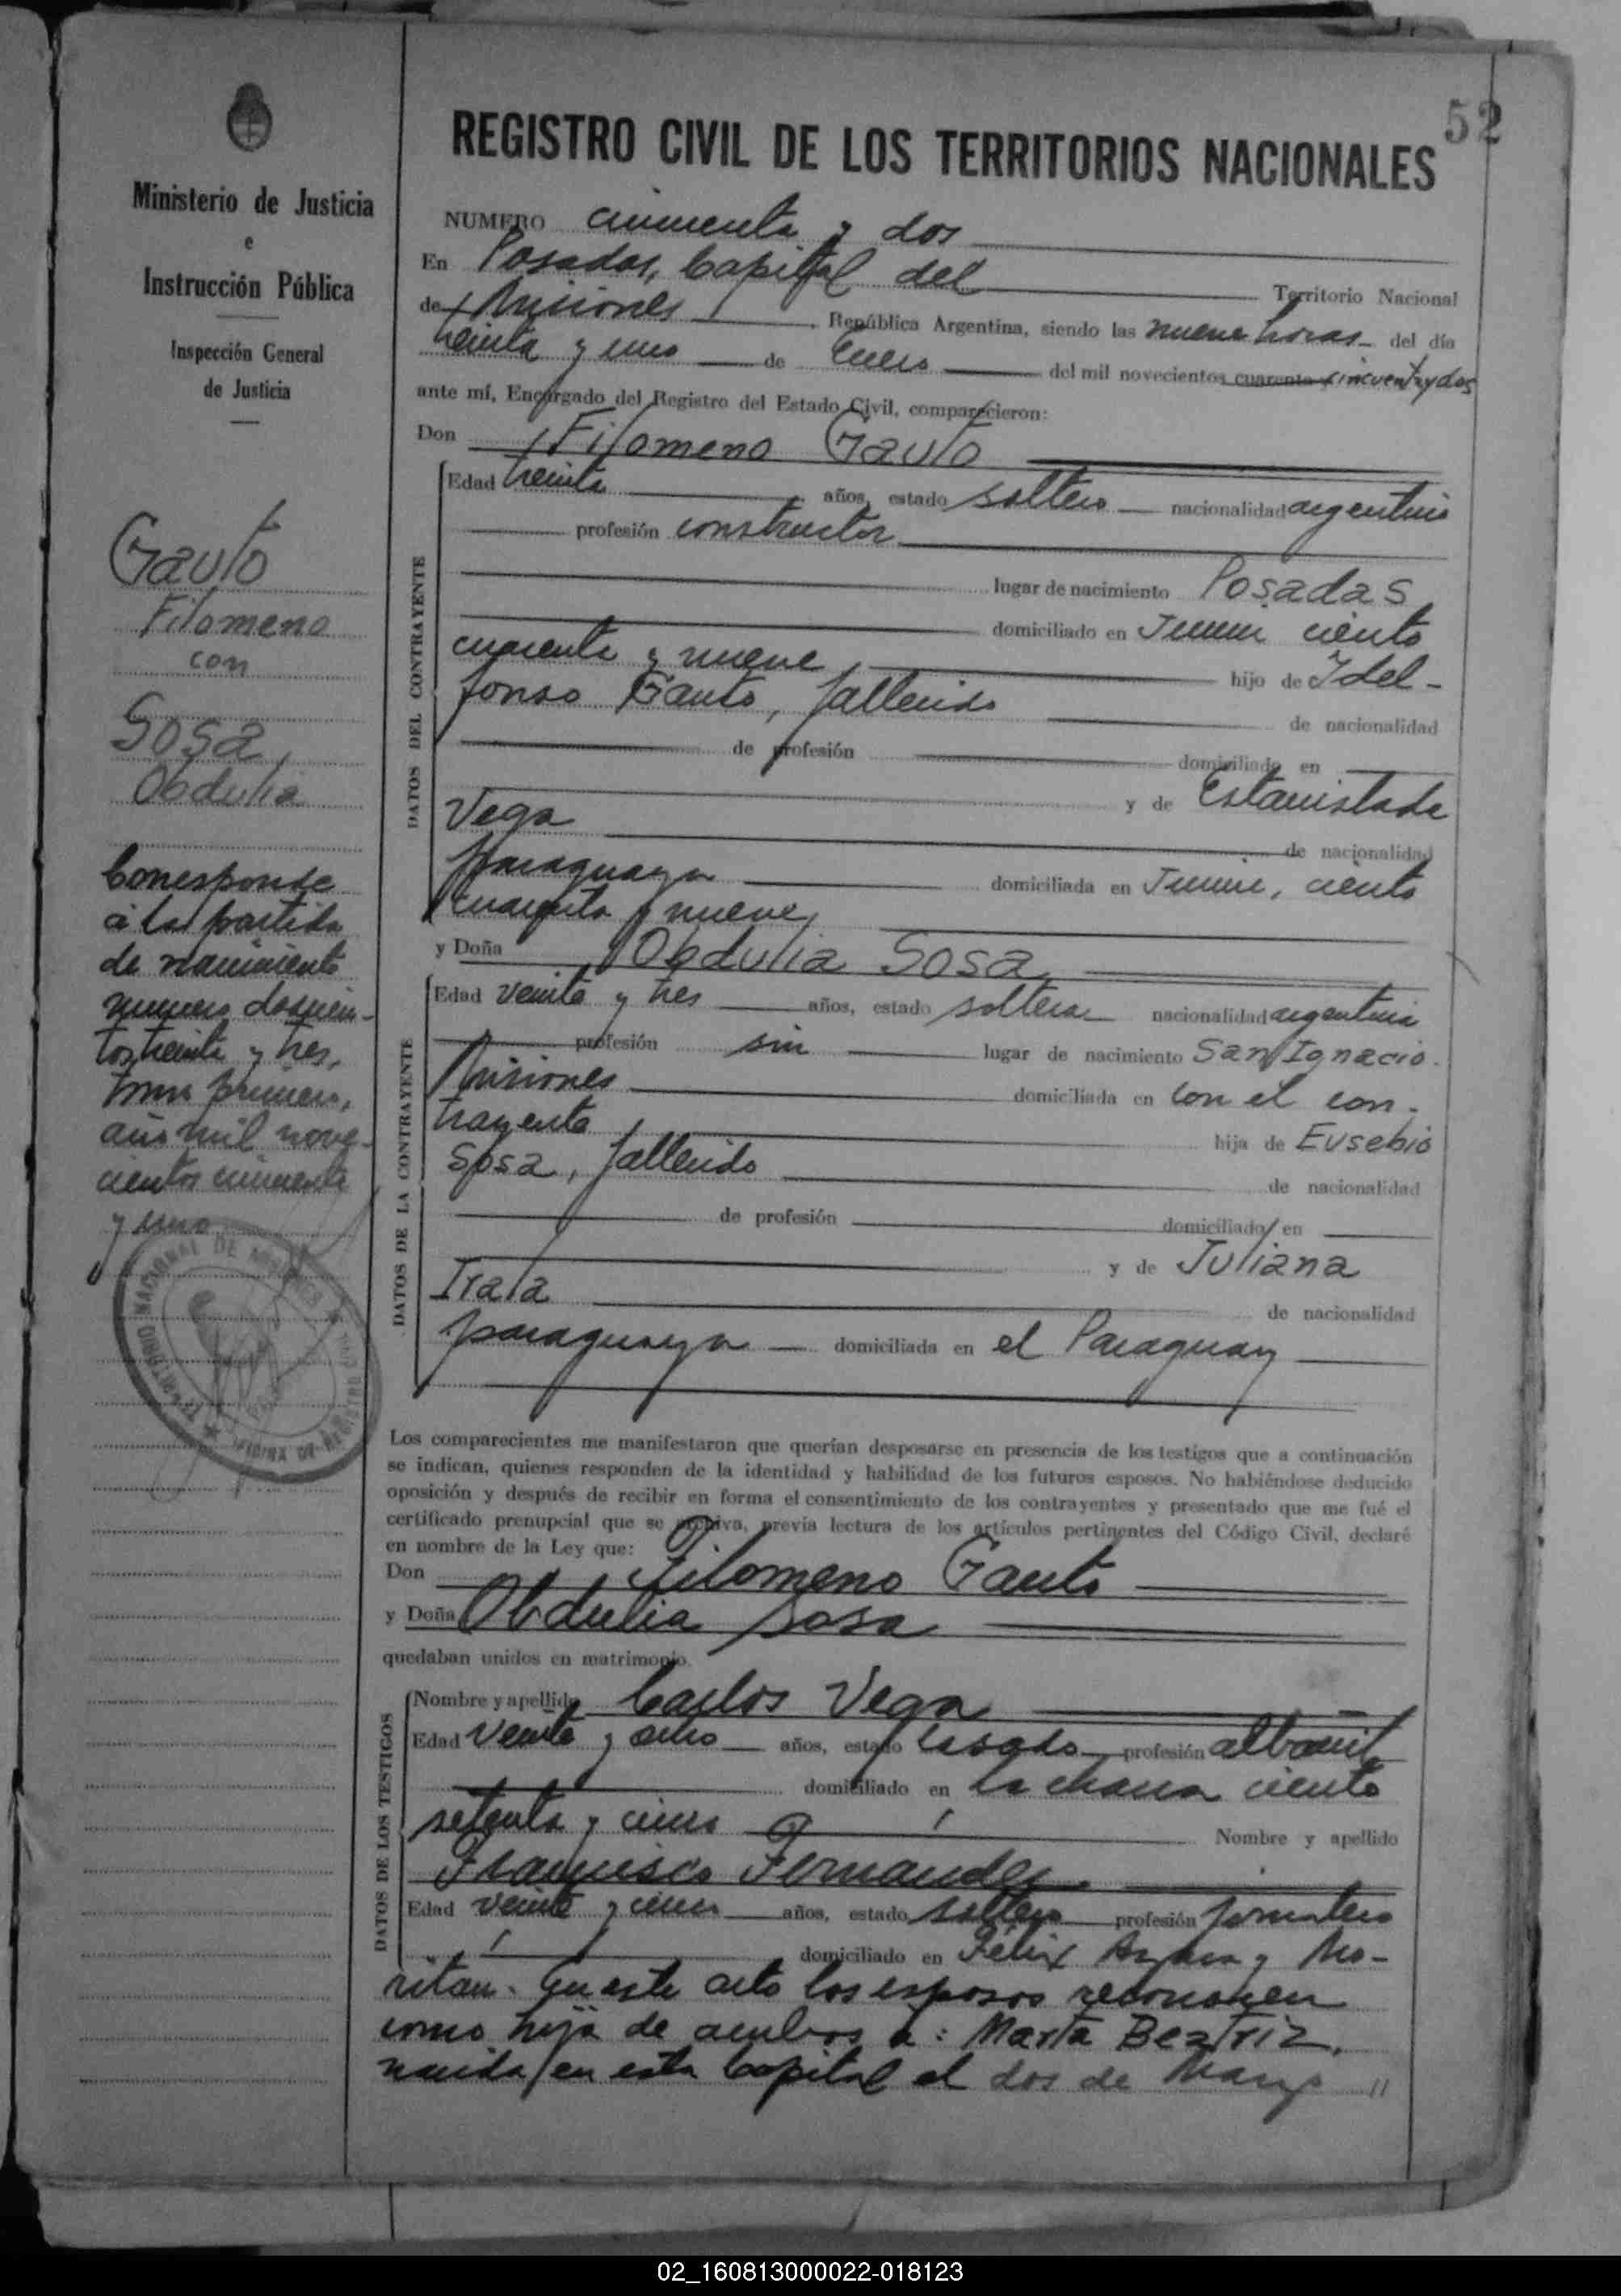 52
REGISTRO CIVIL DE LOS TERRITORIOS NACIONALES
Ministerio de Justicia
e
Instrucción Pública
Inspección General
de Justicia
Gauto
Filomeno
con
Sosa,
Obdulia
Corresponde
a la partida
de nacimiento
número doscien-
tos treinta y tres,
tomo primero,
año mil nove-
cientos cincuenta
y uno
NUMERO cincuenta y dos
En Posadas, Capital del Territorio Nacional
de Misiones, República Argentina, siendo las nueve horas del día
treinta y uno de Enero del mil novecientos cuarenta cincuenta y dos
ante mí, Encargado del Registro del Estado Civil, comparecieron:
Don Filomeno Gauto
DATOS DEL CONTRAYENTE
Edad treinta años, estado soltero nacionalidad argentino
profesión constructor
lugar de nacimiento Posadas
domiciliado en Junin ciento
cuarenta y nueve, hijo de Idel-
fonso Gauto, fallecido de nacionalidad
de profesión domiciliado en
y de Estanislada
Vega de nacionalidad
paraguaya domiciliada en Junin, ciento
cuarenta y nueve,
y Doña Obdulia Sosa
DATOS DE LA CONTRAYENTE
Edad veinte y tres años, estado soltera nacionalidad argentina
profesión sin lugar de nacimiento San Ignacio.
Misiones domiciliada en con el con-
trayente hija de Eusebio
Sosa, fallecido de nacionalidad
de profesión domiciliado en
y de Juliana
Irala de nacionalidad
paraguaya domiciliada en el Paraguay
Los comparecientes me manifestaron que querían desposarse en presencia de los testigos que a continuación
se indican, quienes responden de la identidad y habilidad de los futuros esposos. No habiéndose deducido
oposición y después de recibir en forma el consentimiento de los contrayentes y presentado que me fué el
certificado prenupcial que se archiva, previa lectura de los artículos pertinentes del Código Civil, declaré
en nombre de la Ley que:
Don Filomeno Gauto
y Doña Obdulia Sosa
quedaban unidos en matrimonio.
DATOS DE LOS TESTIGOS
Nombre y apellido Carlos Vega
Edad veinte y ocho años, estado casado profesión albañil
domiciliado en la chacra ciento
setenta y cinco Nombre y apellido
Francisco Fernandez
Edad veinte y cinco años, estado soltero profesión jornalero
domiciliado en Félix Azara y Mo-
ritan. En este acto los esposos reconocen
como hija de ambos a: Marta Beatriz,
nacida en esta Capital el dos de Marzo //
02_160813000022-018123